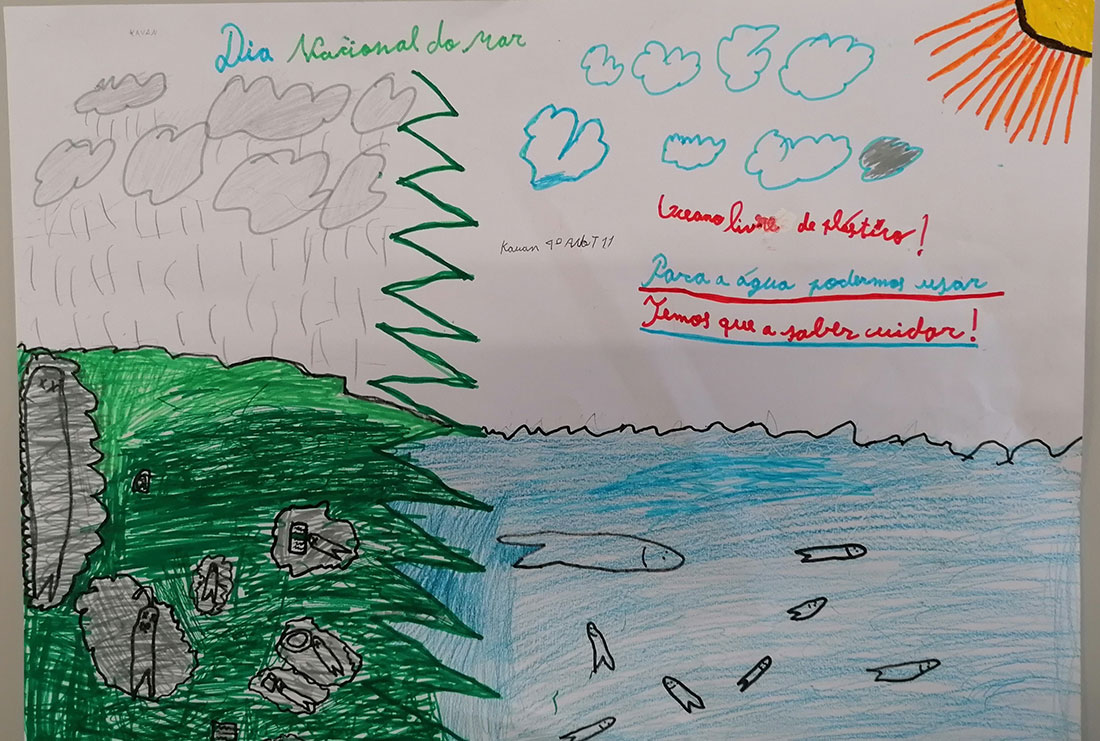 KAUAN
Dia Nacional do Mar
Oceano livre de plástico!
Kauan 4º A 11
Para a água podermos usar
Temos que a saber cuidar!